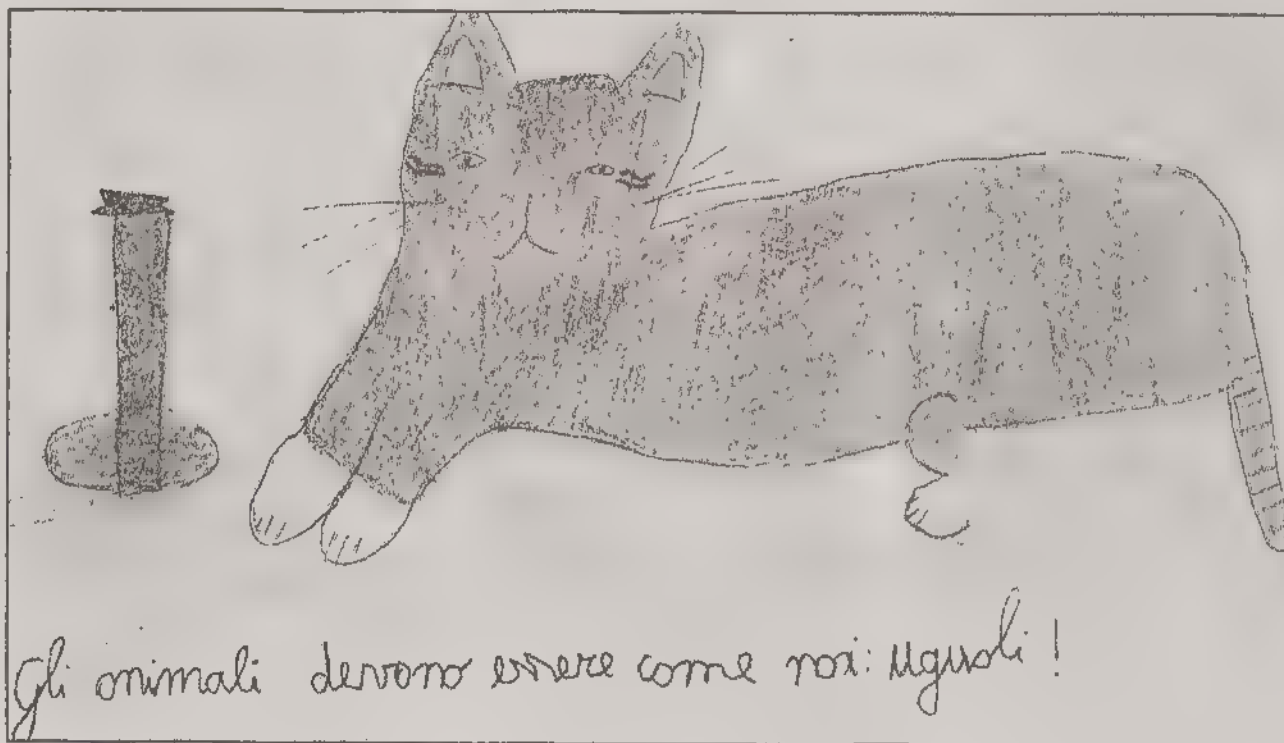 Gli animali devono essere come noi: uguali!